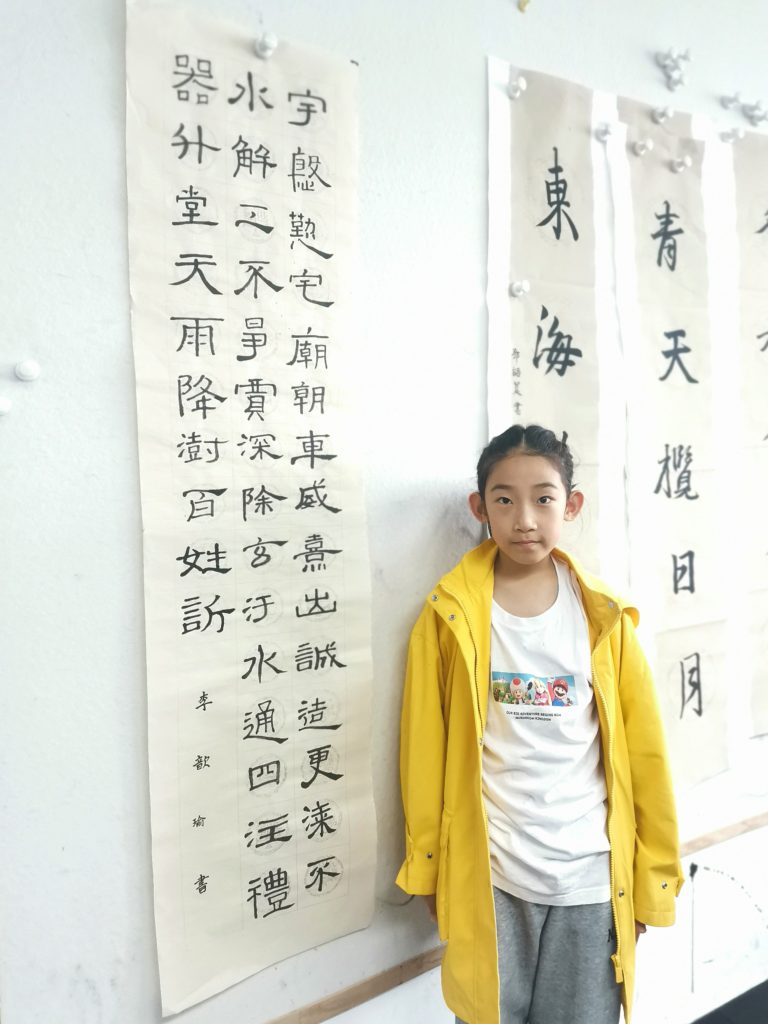 宇慇懃宅廟朝車威熹出誠造更漆不
水解工不爭賈深除玄汙水通四注禮
器升堂天雨降澍百姓訢
李歆瑜書
東海
書
青天攬日月
MUSHROOM KINGDOM